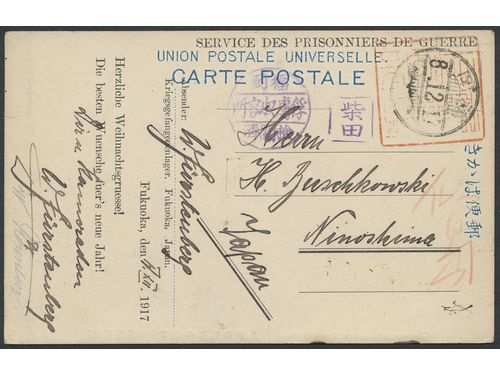 SERVICE DES PRISONNIERS DE GUERRE
UNION POSTALE UNIVERSELLE.
CARTE POSTALE
8.12.17
柴田
きがは便郵
Herrn
H. Buschkowski
Ninoshima
Japan
Absender:
W. Fürstenberg
Kriegsgefangenenlager, Fukuoka, Japan.
Fukuoka, den 1917
Herzliche Weihnachtsgruesse!
Die besten Wuensche fuer's neue Jahr!
Dir u. Kameraden
W. Fürstenberg